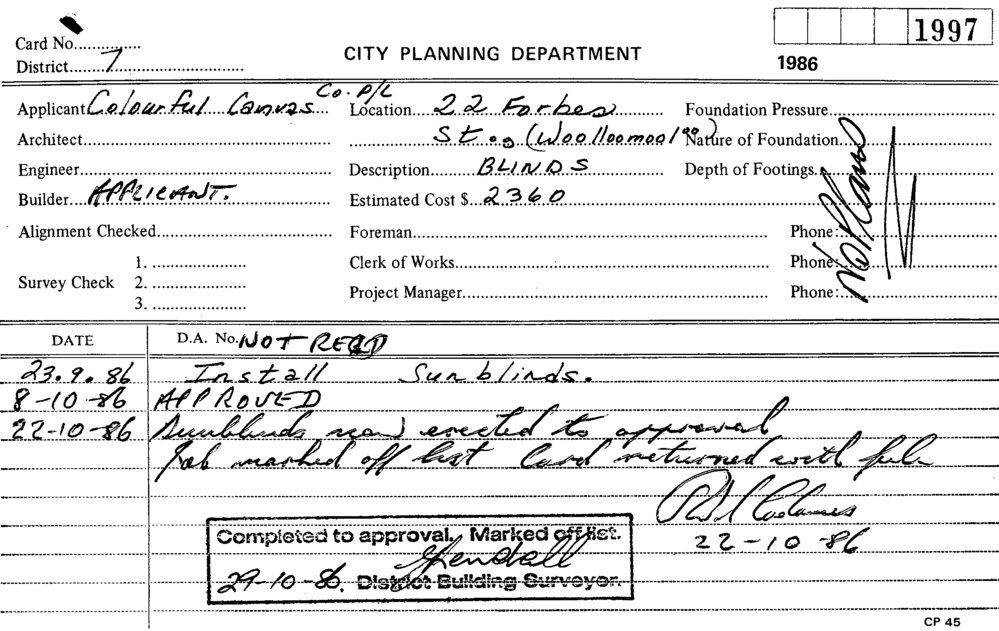 1997
Card No.
CITY PLANNING DEPARTMENT
District 7
1986
Applicant Colourful Canvas Co. P/L
Location 22 Forbes
Foundation Pressure
Architect
St., (Woolloomooloo)
Nature of Foundation
Engineer
Description BLINDS
Depth of Footings
Builder APPLICANT.
Estimated Cost $ 2360
No Plans
Alignment Checked
Foreman
Phone:
Survey Check
1.
2.
3.
Clerk of Works
Phone:
Project Manager
Phone:
DATE
D.A. No. NOT REQD
23.9.86 Install Sunblinds.
8-10-86 APPROVED
22-10-86 Sunblinds now erected to approval
Job marked off list Card returned with file
22-10-86
Completed to approval. Marked off list.
29-10-86. District Building Surveyor.
CP 45